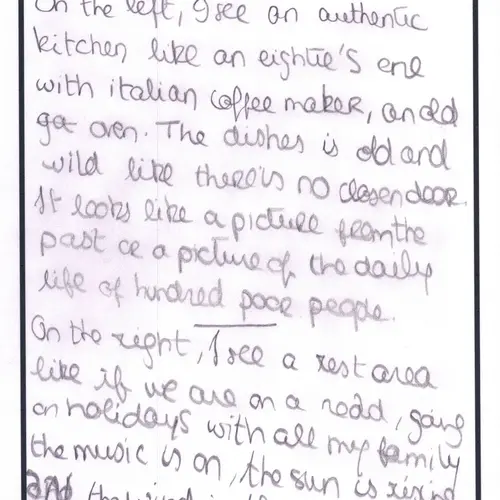 On the left, I see an authentic
kitchen like an eightie's one
with italian coffee maker, an old
gat oven. The dishes is old and
wild like there's no closen door.
It looks like a picture from the
past or a picture of the daily
life of hundred poor people.
On the right, I see a rest area
like if we are on a road, going
on holidays with all my family
the music is on, the sun is rising
and the wind